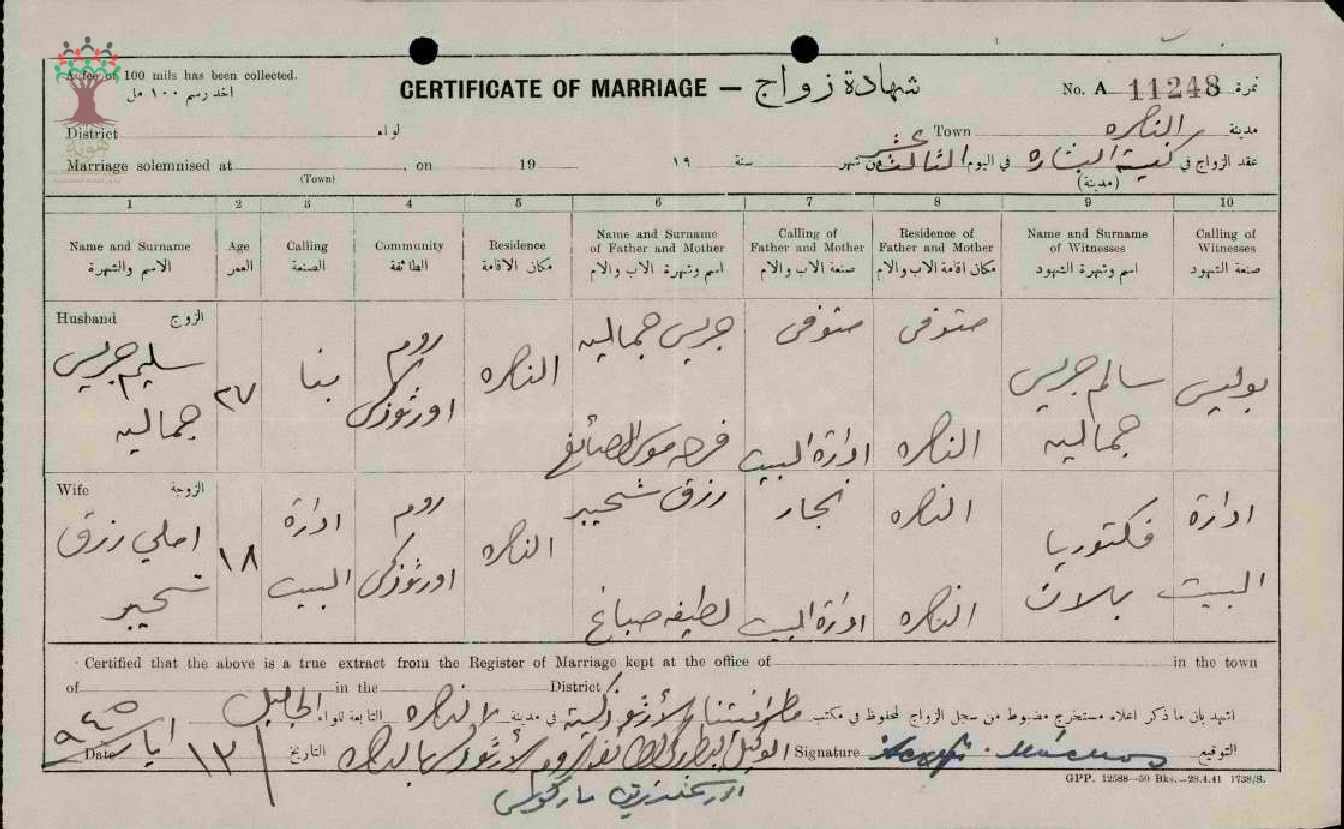 A fee of 100 mils has been collected.
اخذ رسم ١٠٠ مل
CERTIFICATE OF MARRIAGE — شهادة زواج
No. A 11248 نمرة
هوية
District لواء
Town الناصره مدينة
Marriage solemnised at , on 19
(Town)
عقد الزواج في كنيسة البشاره في اليوم الثالث عشر من شهر سنة ١٩
(مدينة)
1 2 3 4 5 6 7 8 9 10
Name and Surname Age Calling Community Residence Name and Surname of Father and Mother Calling of Father and Mother Residence of Father and Mother Name and Surname of Witnesses Calling of Witnesses
الاسم والشهرة العمر الصنعة الطائفة مكان الاقامة اسم وشهرة الاب والام صنعة الاب والام مكان اقامة الاب والام اسم وشهرة الشهود صنعة الشهود
Husband الزوج
سليم جريس جماليه
٢٧
بنا
روم اورثوذكس
الناصره
جريس جماليه
متوفى
متوفى
سالم جريس جماليه
بوليس
فرحه موسى الصائغ
ادارة البيت
الناصره
Wife الزوجة
املي رزق شحيبر
١٨
ادارة البيت
روم اورثوذكس
الناصره
رزق شحيبر
نجار
الناصره
فكتوريا بلان
ادارة البيت
لطيفه صباغ
ادارة البيت
الناصره
Certified that the above is a true extract from the Register of Marriage kept at the office of in the town
of in the District
اشهد بان ما ذكر اعلاه مستخرج مضبوط من سجل الزواج المحفوظ في مكتب مطرانيتنا الأرثوذكسية في مدينة الناصره التابعة للواء الجليل
Date ١٣ ايار ٩٤٥ التاريخ
Signature التوقيع
GPP. 12588—50 Bks.—28.4.41 1738/S.